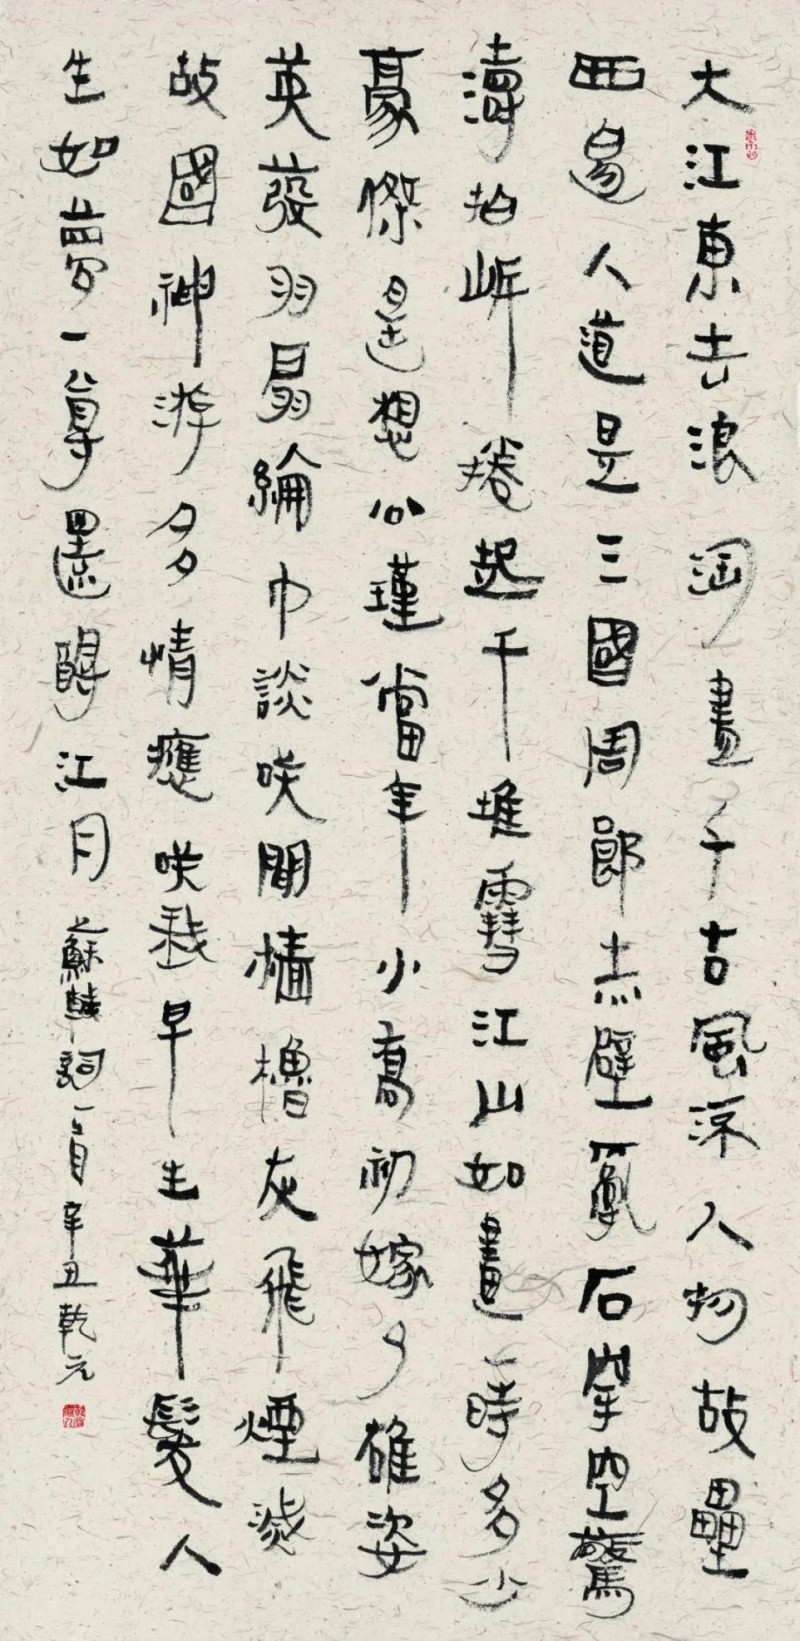 大江東去浪淘盡千古風流人物故壘
西邊人道是三國周郎赤壁亂石空驚
濤拍岸捲起千堆雪江山如畫一時多少
豪傑遙想公瑾當年小喬初嫁了雄姿
英發羽扇綸巾談咲間檣櫓灰飛煙滅
故國神游多情應咲我早生華髮人
生如夢一尊還酹江月 蘇軾詞一首辛丑乾元